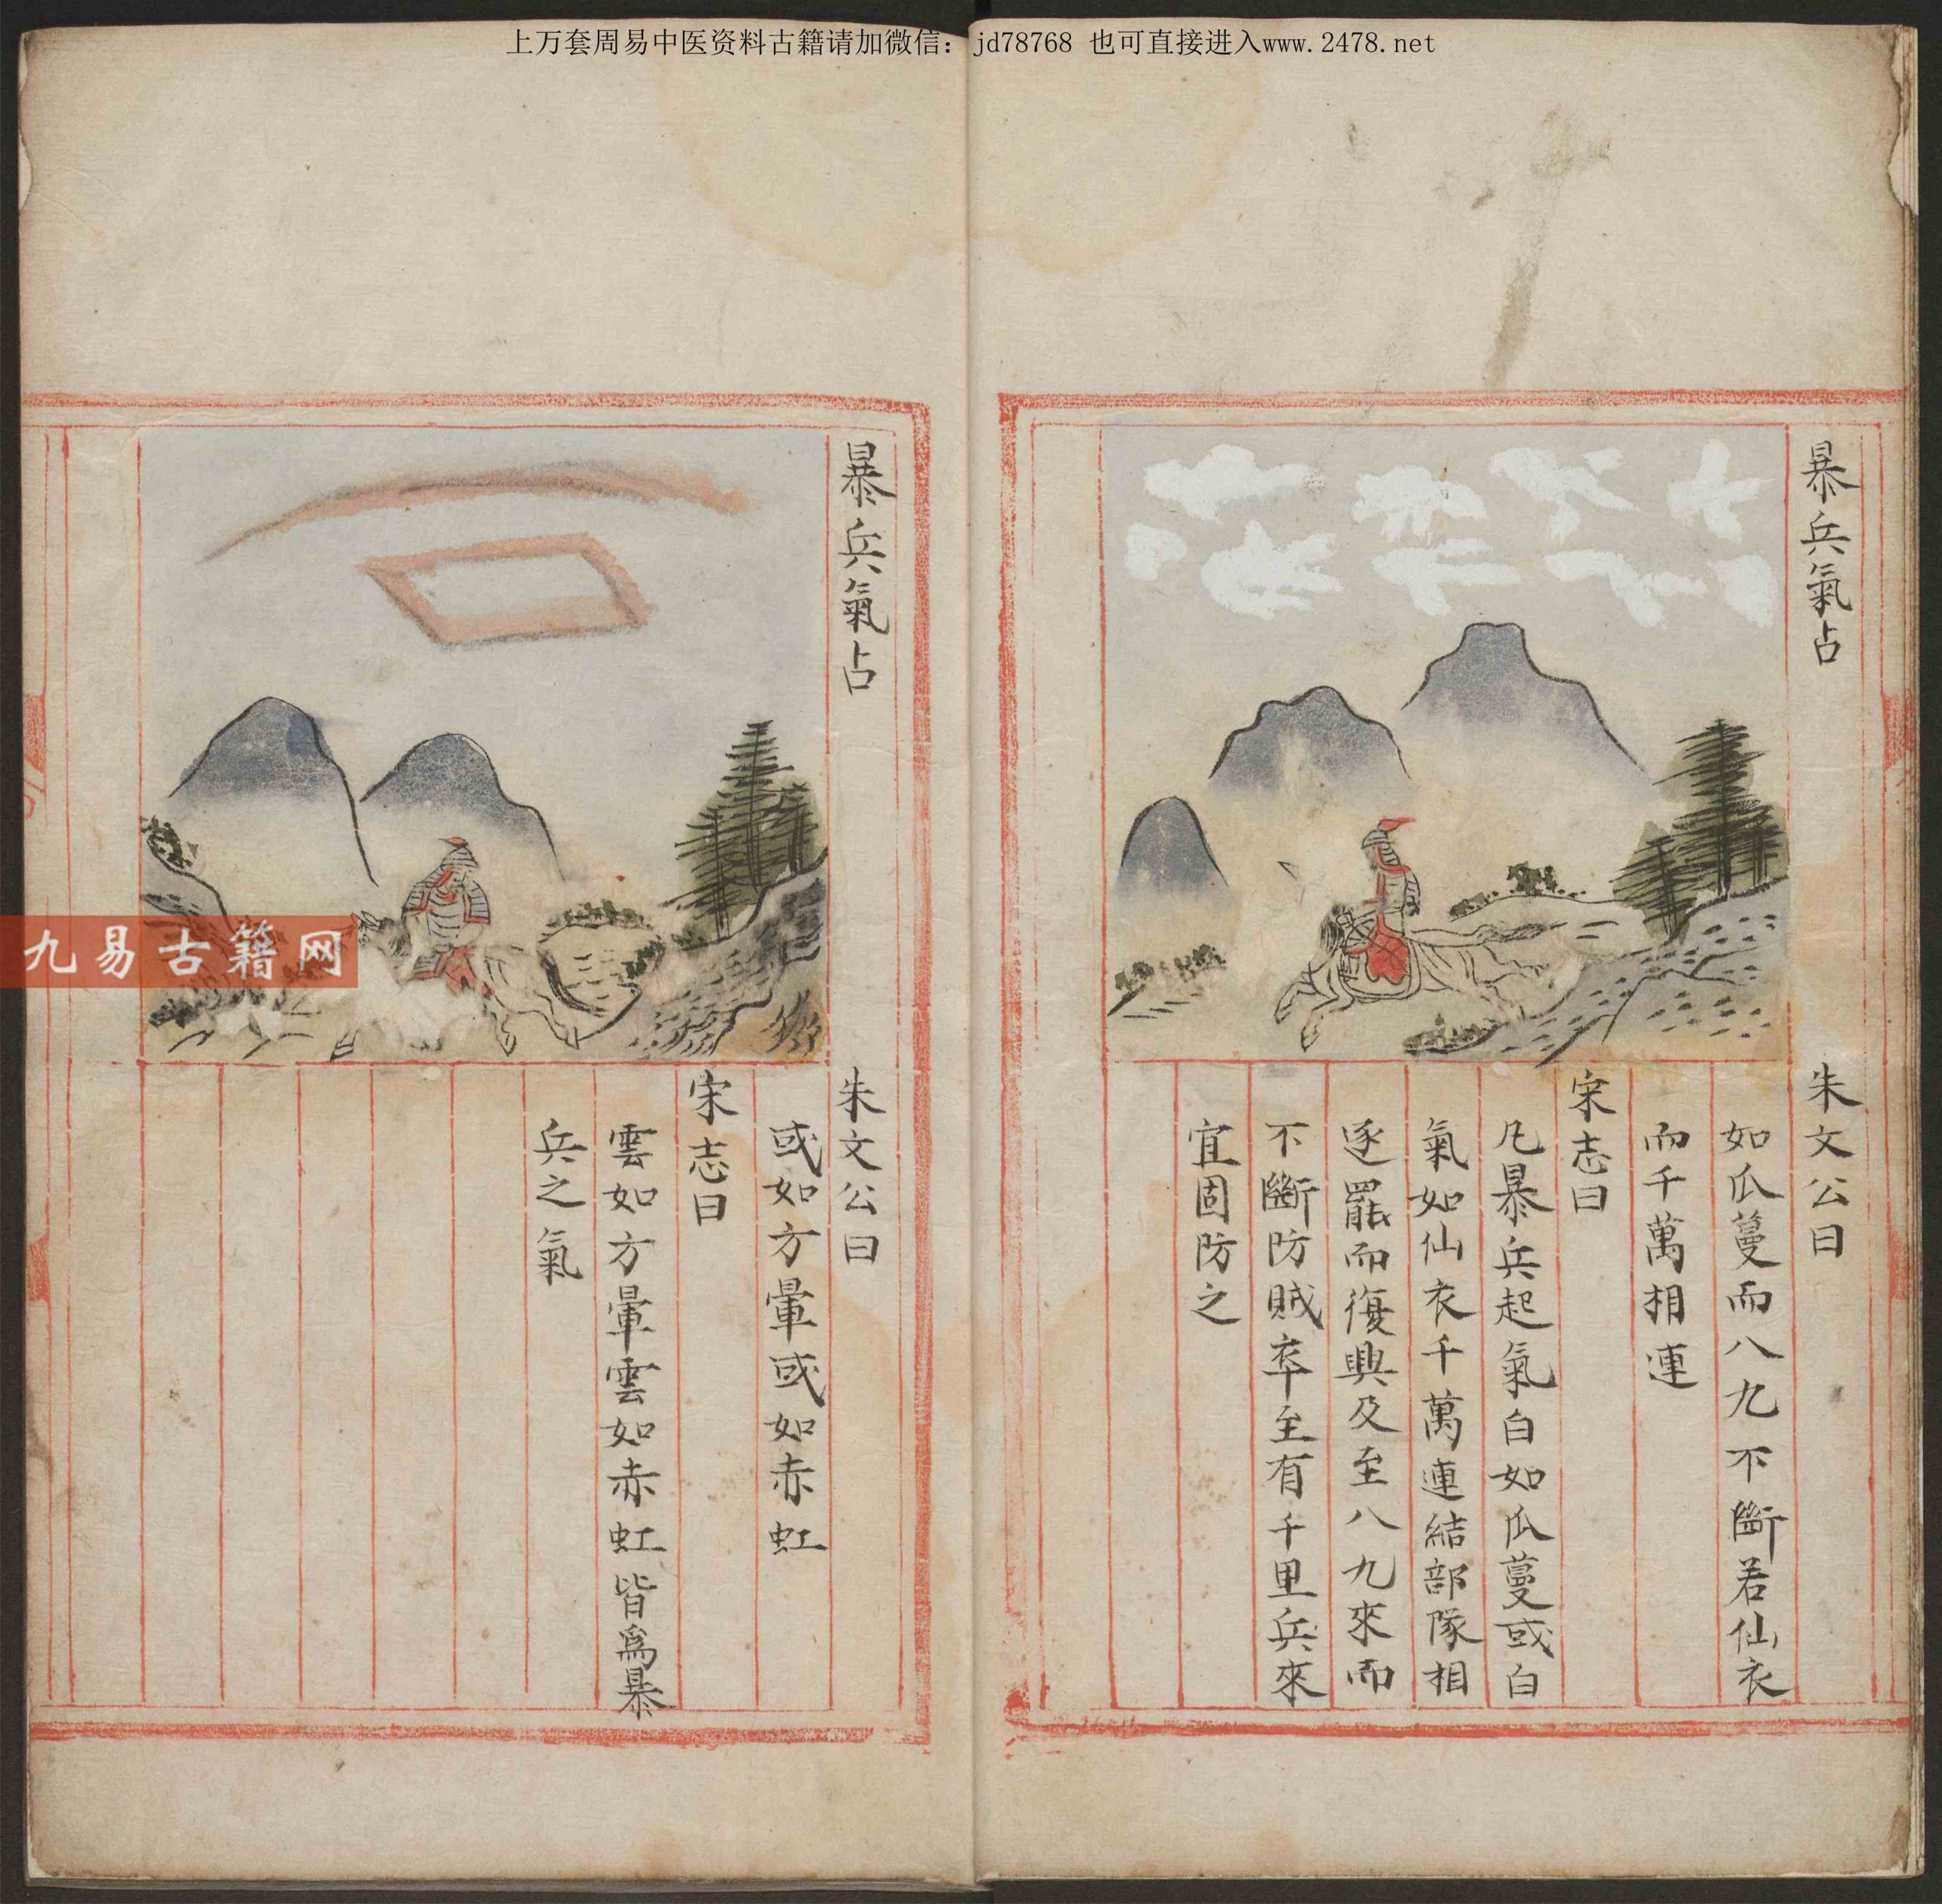 上万套周易中医资料古籍请加微信：jd78768 也可直接进入www.2478.net
暴兵氣占
朱文公曰
如瓜蔓而八九不斷若仙衣
而千萬相連
宋志曰
凡暴兵起氣白如瓜蔓或白
氣如仙衣千萬連結部隊相
逐罷而復興及至八九來而
不斷防賊卒至有千里兵來
宜固防之
暴兵氣占
朱文公曰
或如方暈或如赤虹
宋志曰
雲如方暈雲如赤虹皆爲暴
兵之氣
九易古籍网